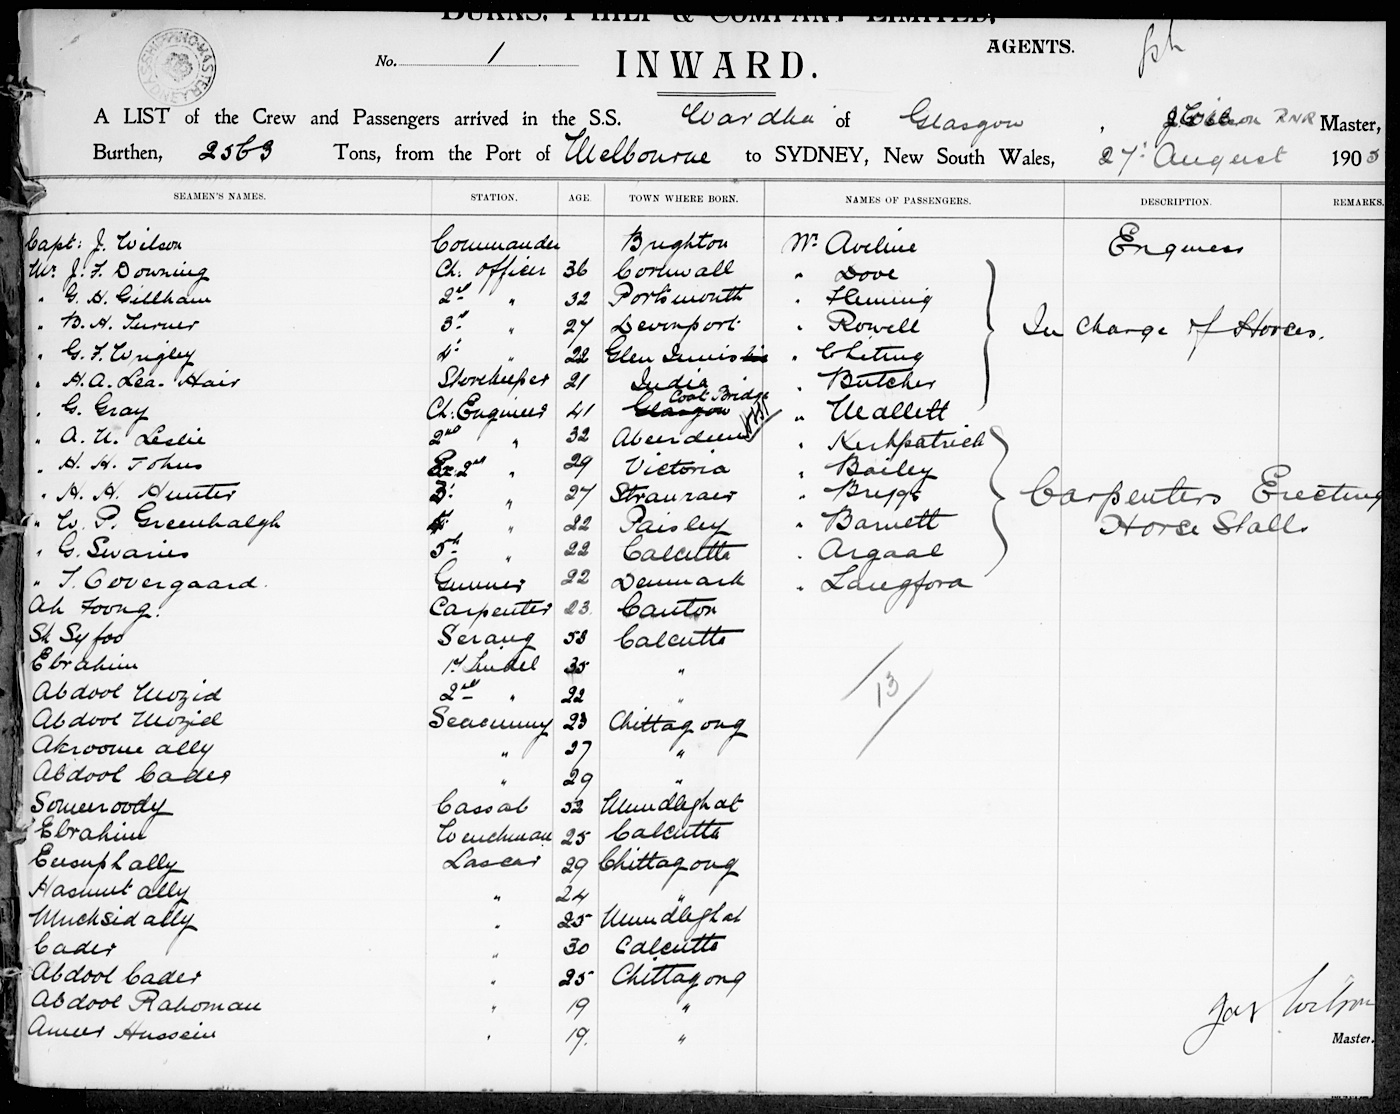 BURNS, PHILP & COMPANY LIMITED,
AGENTS.
No. 1
INWARD.
A LIST of the Crew and Passengers arrived in the S.S. Wardha of Glasgow, J. Wilson RNR Master,
Burthen, 2563 Tons, from the Port of Melbourne to SYDNEY, New South Wales, 27th August 1903
SEAMEN'S NAMES. STATION. AGE. TOWN WHERE BORN. NAMES OF PASSENGERS. DESCRIPTION. REMARKS.
Capt: J. Wilson Commander Brighton Mr Aveline Engineer
Mr J. F. Downing Ch: officer 36 Cornwall " Dove
" G. H. Gillham 2nd " 32 Portsmouth " Fleming
" B. H. Turner 3rd " 27 Devonport " Rowell In charge of Horses.
" G. F. Wrigley 4th " 22 Glen Innis " Chiting
" H. A. Lea-Hair Storekeeper 21 India " Butcher
" G. Gray Ch: Engineer 41 Glasgow Coat Bridge " Mallett
" A. U. Leslie 2nd " 32 Aberdeen " Kirkpatrick
" H. H. Johns Ex 2nd " 29 Victoria " Bailey
" H. H. Hunter 3rd " 27 Stranraer " Briggs Carpenters Erecting
" W. P. Greenhalgh 4th " 22 Paisley " Barnett Horse Stalls
" G. Swaries 5th " 22 Calcutta " Argaal
" T. Oovergaard. Gunner 22 Denmark " Langfora
Ah Foong. Carpenter 23. Canton
Sk Syfoo Serang 53 Calcutta
Ebrahim 1st Tindel 35 "
Abdool Mozid 2nd " 22 " 13
Abdool Mozid Seacunny 23 Chittagong
Akroome ally " 27 "
Abdool Cader " 29 "
Someroody Cassab 52 Mundleghat
Ebrahim Winchman 25 Calcutta
Eusuph ally Lascar 29 Chittagong
Hasmut ally " 24 "
Mucksid ally " 25 Mundleghat
Cader " 30 Calcutta
Abdool Cader " 25 Chittagong
Abdool Rahoman " 19 "
Ameer Hussein " 19. "
Jas Wilson
Master.